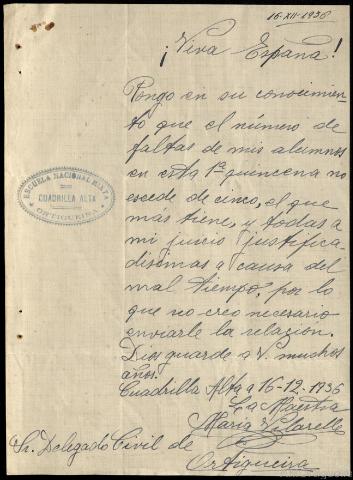 16-XII-1936
¡Viva España!
Pongo en su conocimien-
to que el número de
faltas de mis alumnos
en esta 1ª quincena no
escede de cinco, el que
mas tiene, y todas a
mi juicio justifica-
disimas a causa del
mal tiempo, por lo
que no creo necesario
enviarle la relacion.
Dios guarde a V. muchos
años.
Cuadrilla Alta a 16-12-1936
La Maestra
María Vilarelle
Sr. Delegado Civil de
Ortigueira
ESCUELA NACIONAL MIXTA
CUADRILLA ALTA
ORTIGUEIRA